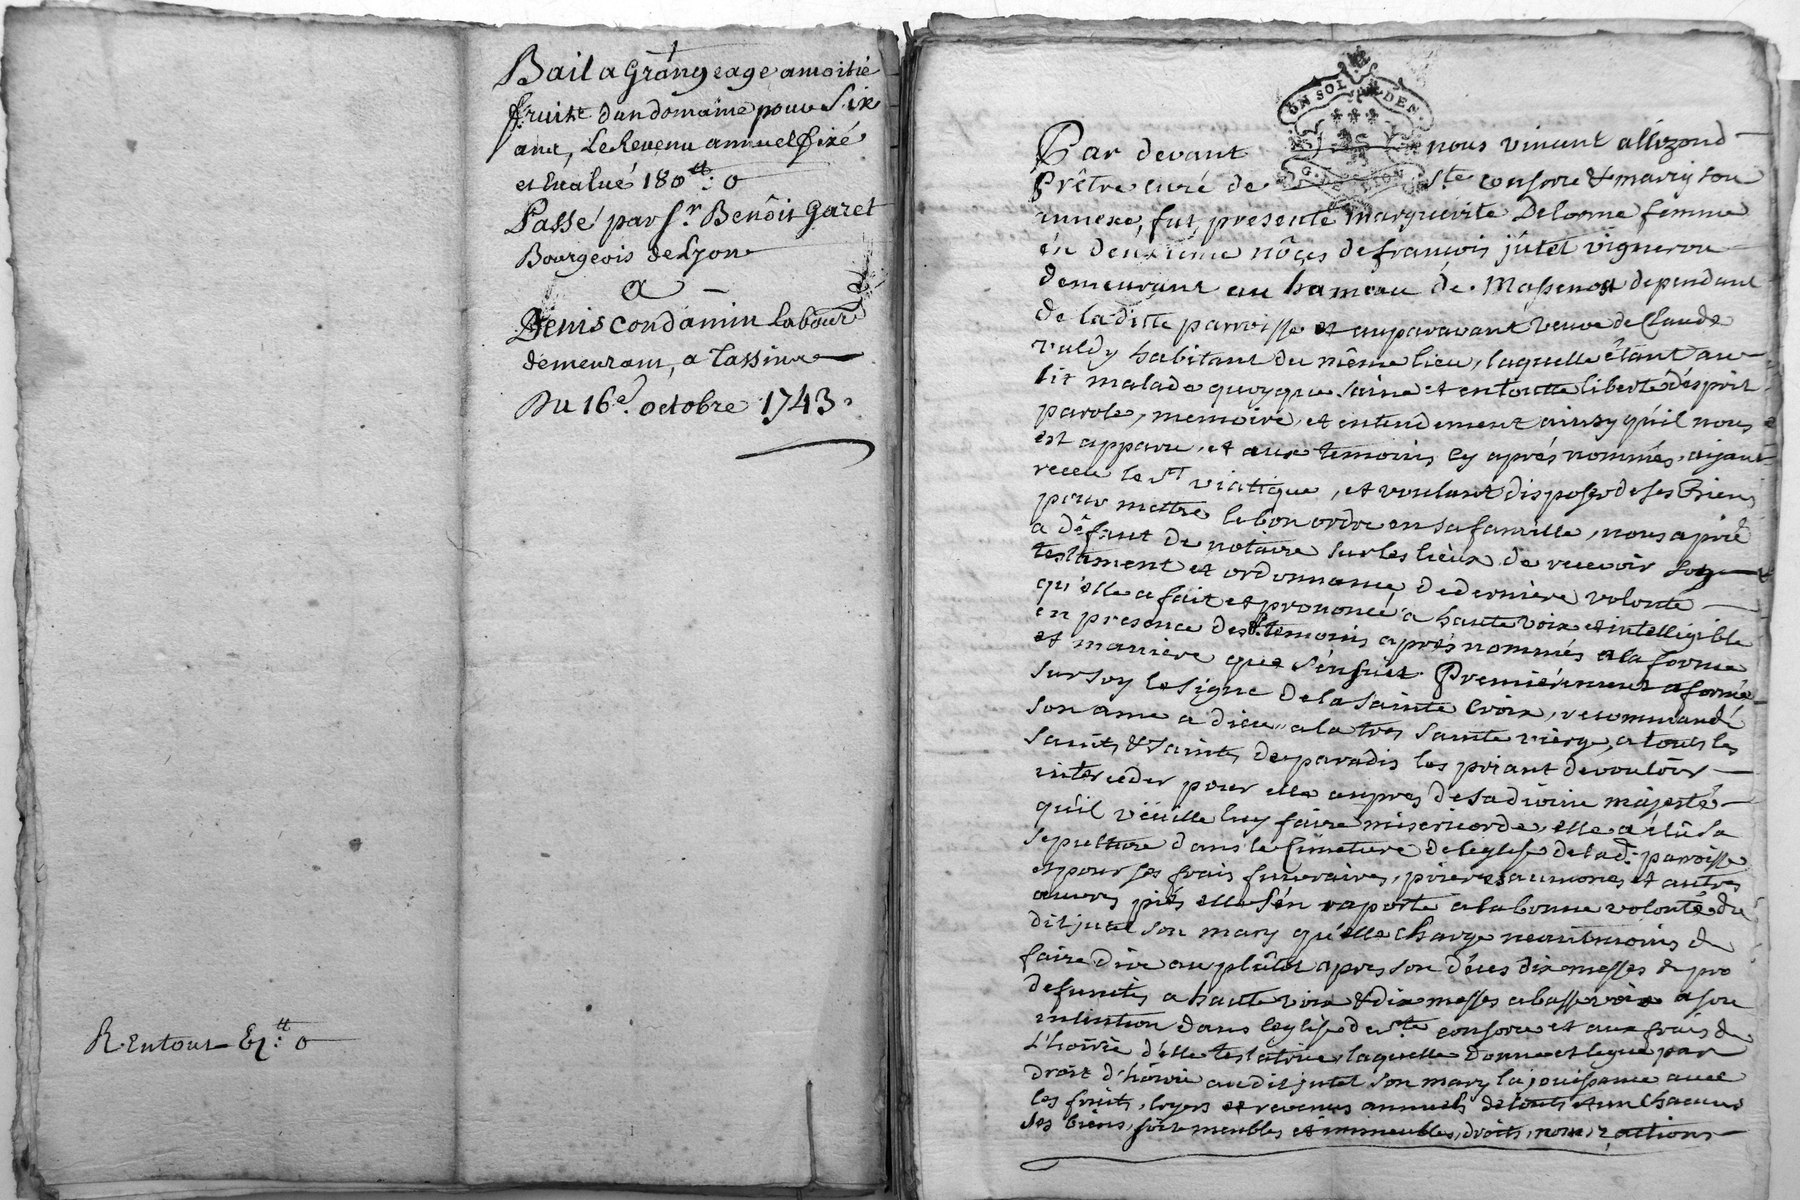 Bail a Grangeage a moitié
fruits d'un domaine pour Six
ans, Le Revenu annuel fixé
et Evalué 180ᵗᵗ: 0
Passé par Sr. Benôit Garet
Bourgeois de Lyon
a
Denis Condamin Labour
demeurant a Tassin
Du 16e. octobre 1743.
R. En tout 0
GON SOL DEN
G. DE LION
Par devant nous vincent
Prêtre curé de Ste consorce & marcy son
annexe, fut presente marguerite Delorme femme
en deuxieme nôces de francois jutet vigneron
demeurant au hameau de dependant
de la ditte parroisse et auparavant veuve de Claude
habitant du même lieu, laquelle étant au
lit malade quoyque saine et en toutte liberté d'esprit
parole, memoire, et entendement ainsy qu'il nous
est apparu, et aux temoins cy aprés nommés, aijant
receu le st viatique, et voulant disposer de ses Biens
pour mettre le bon ordre en sa famille, nous a prié
a défaut de notaire sur les lieux de recevoir son
testament et ordonnance de derniere volonté
qu'elle a fait et prononcé a haute voix et intelligible
en presence des temoins aprés nommés a la forme
et maniere que s'ensuit. Premiérement a formé
sur soy le signe de la Sainte Croix, recommandé
son ame a dieu, a la tres sainte vierge, a touts les
saints & saintes de paradis les priant de vouloir
interceder pour elle aupres de sa divine majesté
qu'il veüille luy faire misericorde, elle a élû sa
sepulture dans le Cimetiere de l'eglise de lad. parroisse
et pour ses frais funeraires, prieres aumones et autres
œuvres pies elle s'en raporte a la bonne volonté du
dit jutet son mary qu'elle charge neantmoins de
faire dire au plûtot apres son déces dix messes de pro
defunctis a haute voix & dix messes a basse voix a son
intention dans l'eglise de ste consorce et aux frais de
L'hoirie d'elle testatrice laquelle donne et legue par
droit d'hoirie au dit jutet son mary la jouissance avec
les fruits, loyers et revenus annuels de touts et un chacuns
ses biens, soit meubles et immeubles, droits, noms, & actions